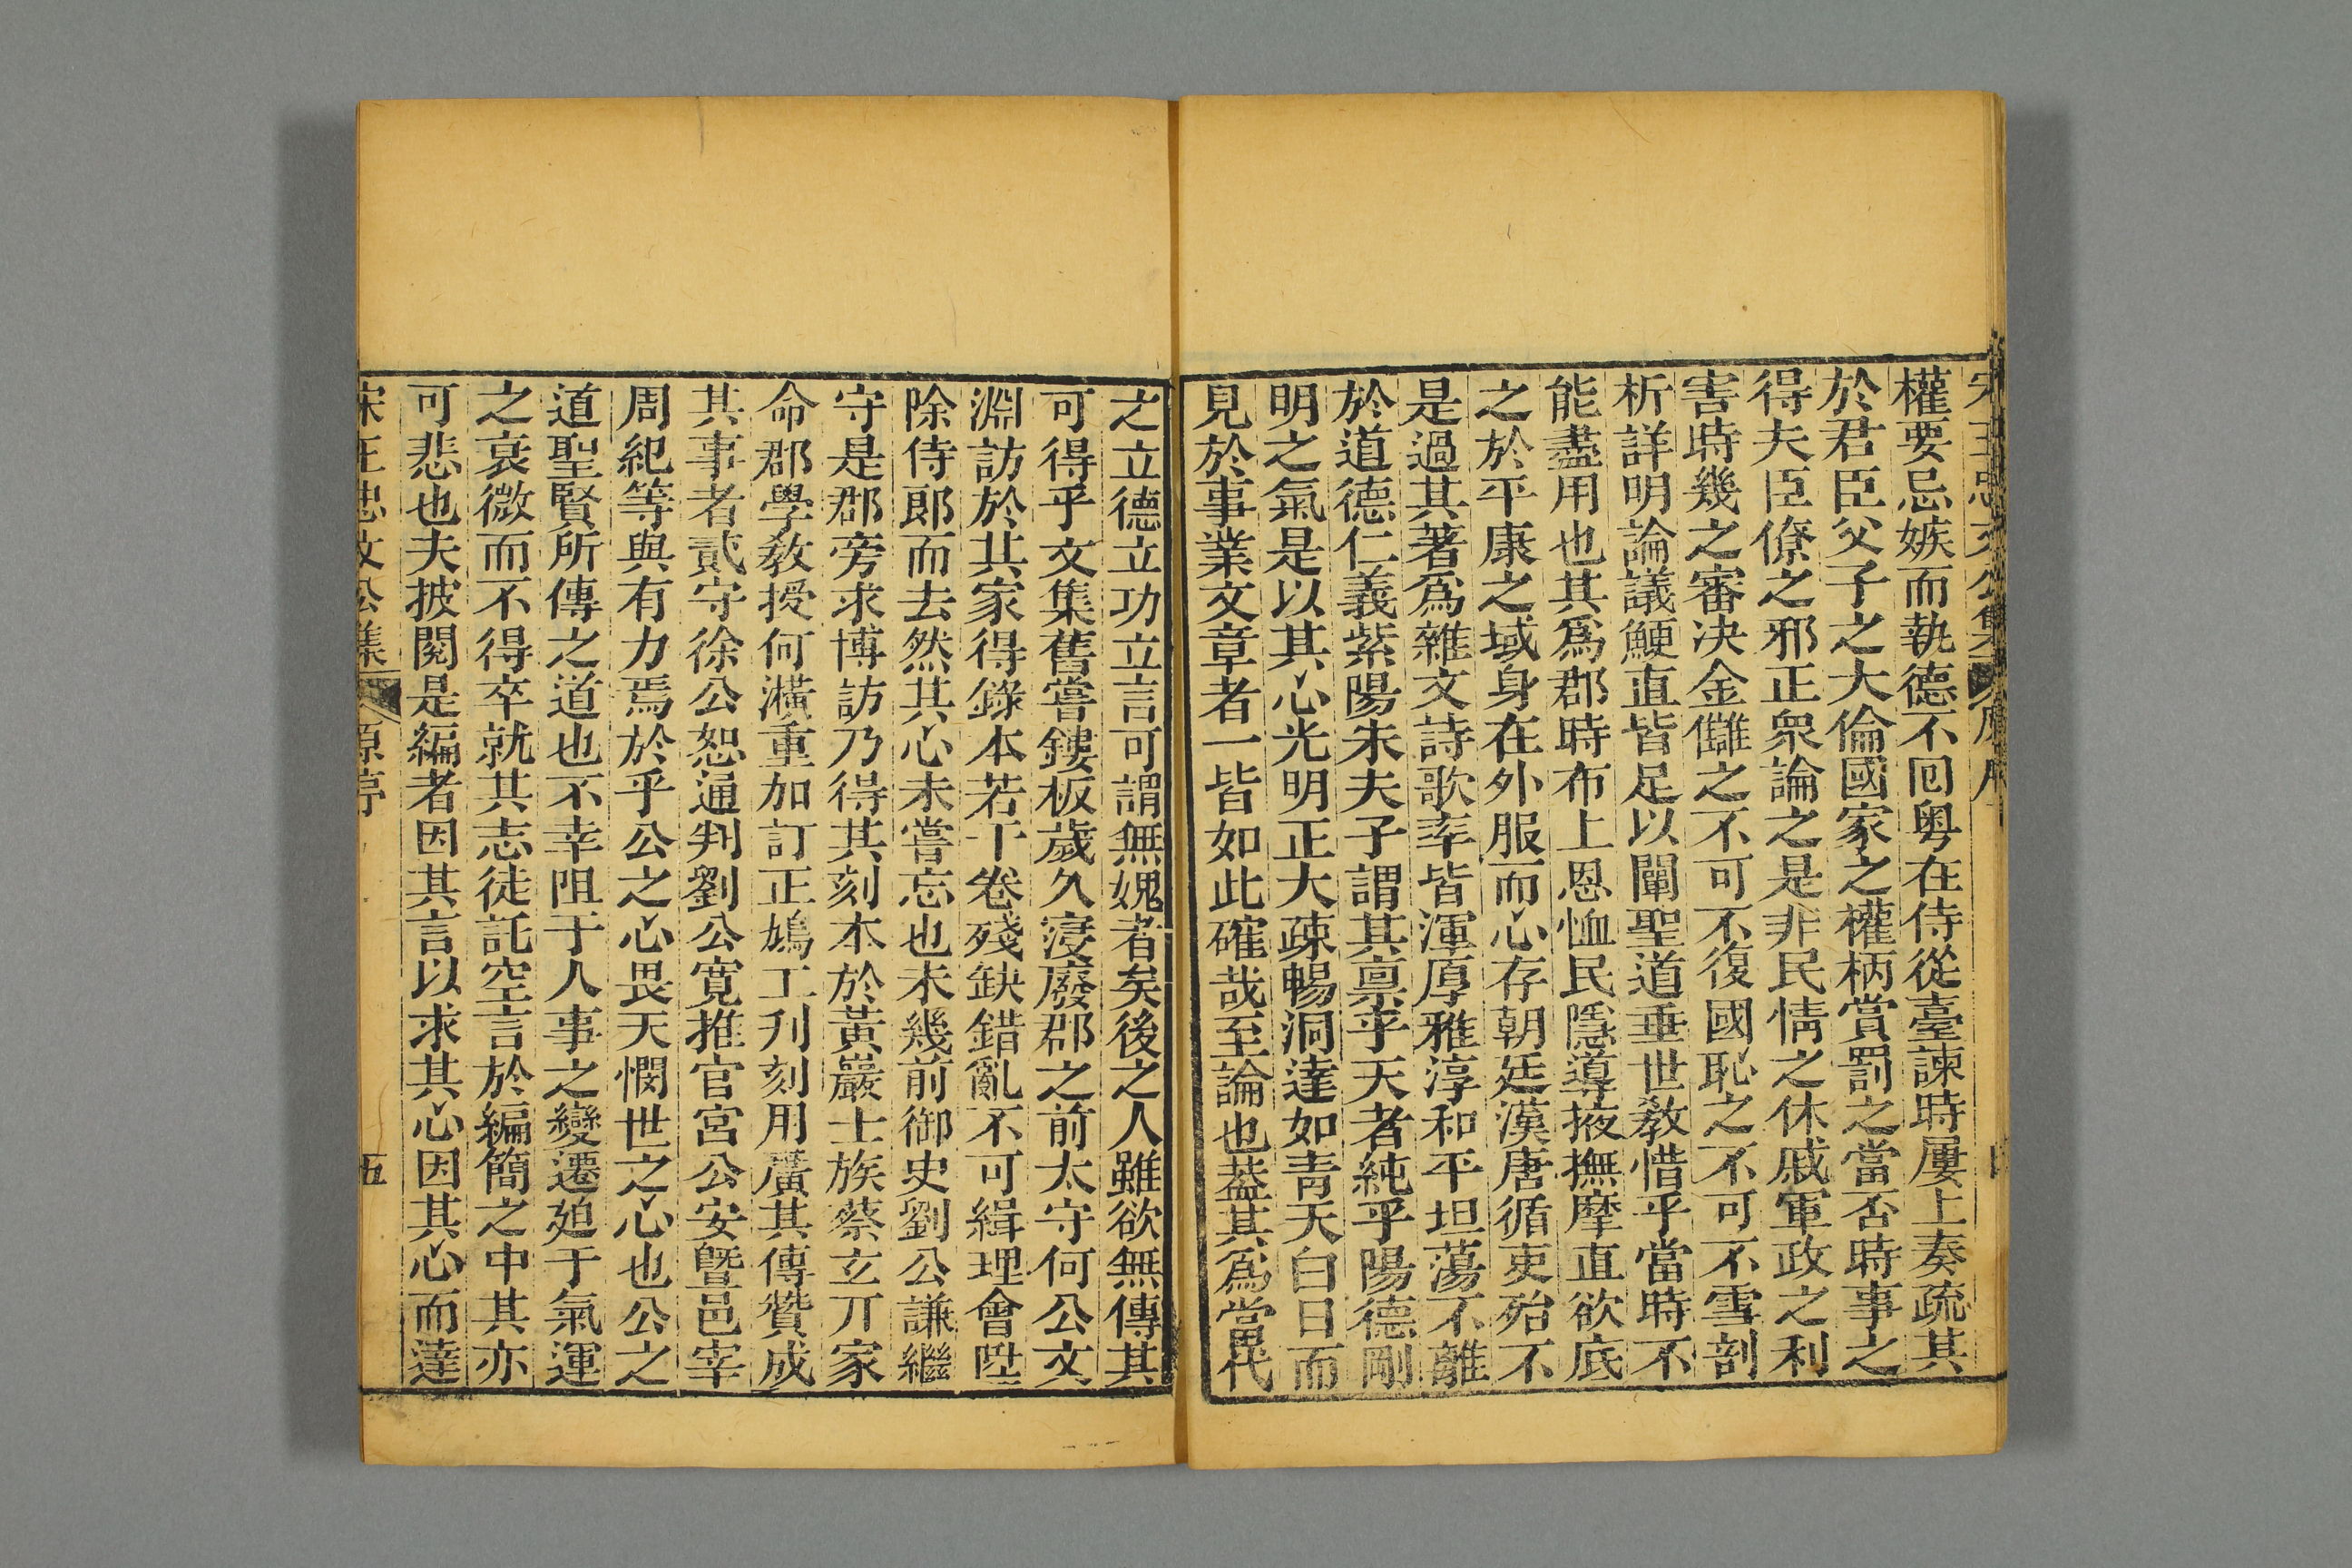 宋王忠文公集
原序
權要忌嫉而執德不囘粤在侍從臺諫時屢上奏疏其
於君臣父子之大倫國家之權柄賞罰之當否時事之
得夫臣僚之邪正衆論之是非民情之休戚軍政之利
害時幾之審決金讎之不可不復國恥之不可不雪剖
析詳明論議鯁直皆足以闡聖道垂世教惜乎當時不
能盡用也其爲郡時布上恩恤民隱導掖撫摩直欲底
之於平康之域身在外服而心存朝廷漢唐循吏殆不
是過其著爲雜文詩歌率皆渾厚雅淳和平坦蕩不離
於道德仁義紫陽朱夫子謂其禀乎天者純乎陽德剛
明之氣是以其心光明正大疎暢洞達如青天白日而
見於事業文章者一皆如此確哉至論也葢其爲當代
之立德立功立言可謂無媿者矣後之人雖欲無傳其
可得乎文集舊嘗鏤板歲久寖廢郡之前太守何公文
淵訪於其家得錄本若干卷殘缺錯亂不可緝理會陞
除侍郎而去然其心未嘗忘也未幾前御史劉公謙繼
守是郡旁求博訪乃得其刻本於黃巖士族蔡玄丌家
命郡學教授何㶇重加訂正鳩工刋刻用廣其傳贊成
其事者貳守徐公恕通判劉公寬推官宮公安曁邑宰
周紀等與有力焉於乎公之心畏天憫世之心也公之
道聖賢所傳之道也不幸阻于人事之變遷廹于氣運
之衰微而不得卒就其志徒託空言於編簡之中其亦
可悲也夫披閱是編者因其言以求其心因其心而達
宋王忠文公集
五